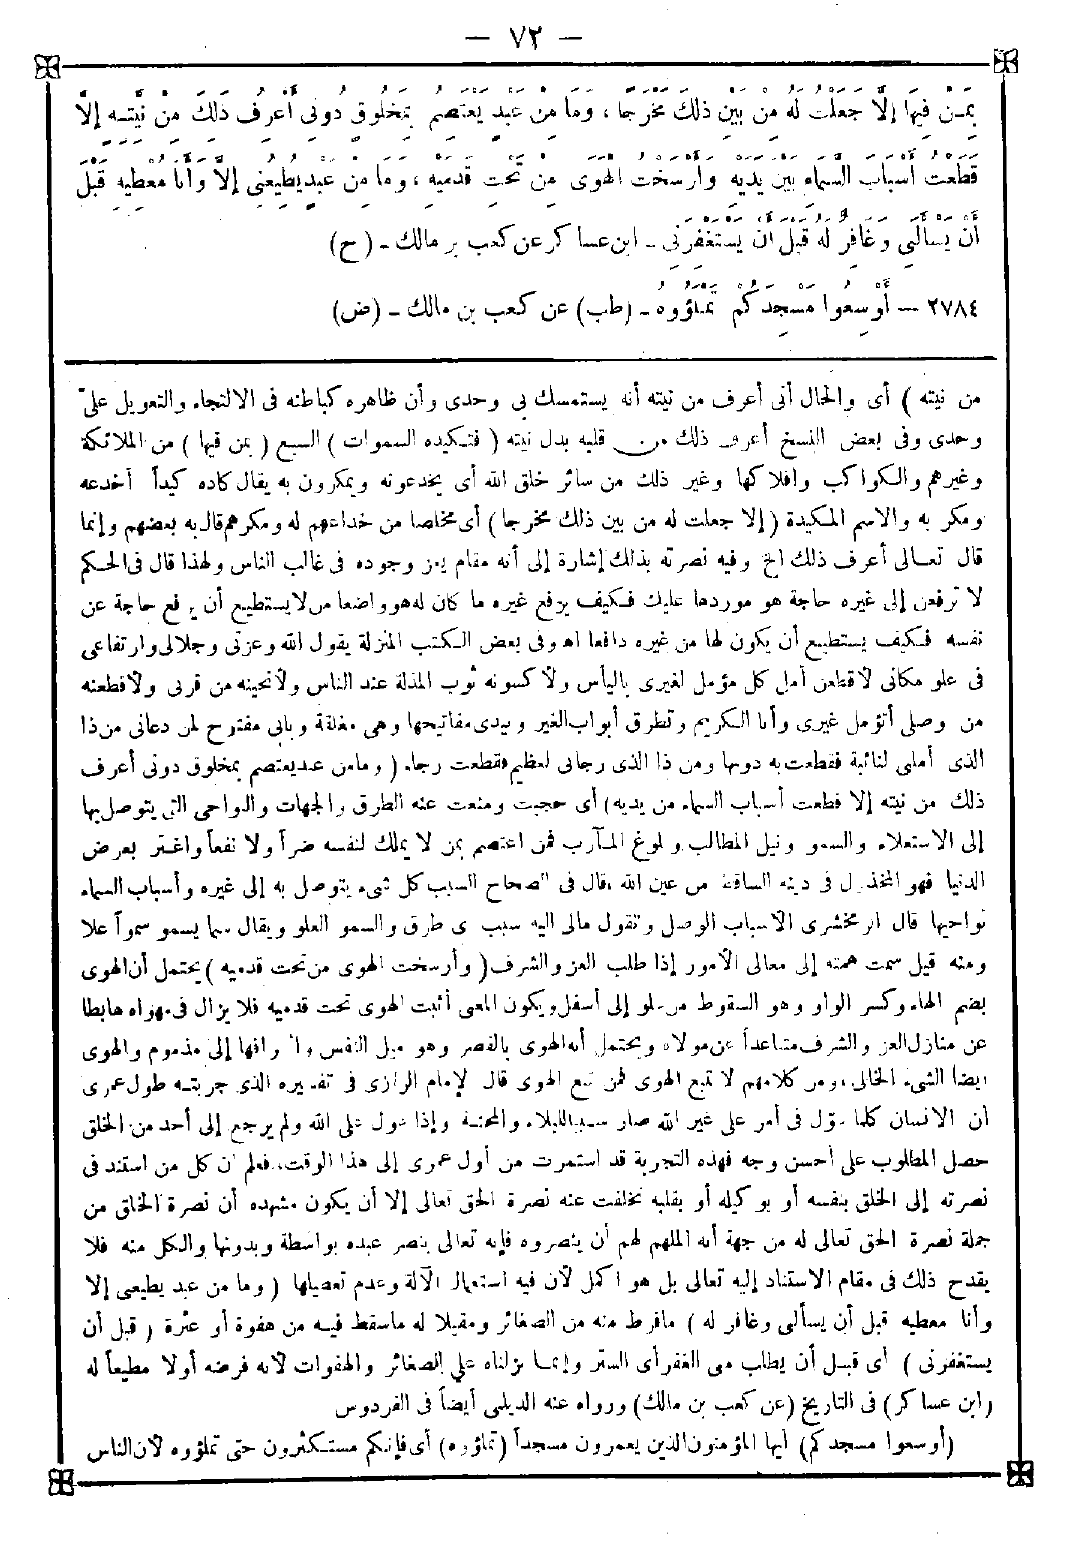 — ٧٢ —
بِمَنْ فِيهَا إِلَّا جَعَلْتُ لَهُ مِنْ بَيْنِ ذَلِكَ مَخْرَجًا ، وَمَا مِنْ عَبْدٍ يَعْتَصِمُ بِمَخْلُوقٍ دُونِي أَعْرِفُ ذَلِكَ مِنْ نِيَّتِهِ إِلَّا
قَطَعْتُ أَسْبَابَ السَّمَاءِ بَيْنَ يَدَيْهِ وَأَرْسَخْتُ الْهَوَى مِنْ تَحْتِ قَدَمَيْهِ ، وَمَا مِنْ عَبْدٍ يُطِيعُنِي إِلَّا وَأَنَا مُعْطِيهِ قَبْلَ
أَنْ يَسْأَلَنِي وَغَافِرٌ لَهُ قَبْلَ أَنْ يَسْتَغْفِرَنِي ـ ابن عساكر عن كعب بن مالك ـ (ح)
٢٧٨٤ — أَوْسِعُوا مَسْجِدَكُمْ تَمْلَؤُوهُ ـ (طب) عن كعب بن مالك ـ (ض)
من نيته ) أى والحال أنى أعرف من نيته أنه يستمسك بى وحدى وأن ظاهره كباطنه فى الالتجاء والتعويل على
وحدى وفى بعض النسخ أعرف ذلك من قلبه بدل نيته ( فتكيده السموات ) السبع ( بمن فيها ) من الملائكة
وغيرهم والكواكب وأفلاكها وغير ذلك من سائر خلق الله أى يخدعونه ويمكرون به يقال كاده كيداً أخدعه
ومكر به والاسم المكيدة ( إلا جعلت له من بين ذلك مخرجا ) أى مخلصا من خداعهم له ومكرهم قاله بعضهم وإنما
قال تعالى أعرف ذلك الخ وفيه نصرته بذلك إشارة إلى أنه مقام يعز وجوده فى غالب الناس ولهذا قال فى الحكم
لا ترفعن إلى غيره حاجة هو موردها عليك فكيف يرفع غيره ما كان له هو واضعا من لا يستطيع أن يرفع حاجة عن
نفسه فكيف يستطيع أن يكون لها من غيره دافعا اه وفى بعض الكتب المنزلة يقول الله وعزتى وجلالى وارتفاعى
فى علو مكانى لأقطعن أمل كل مؤمل لغيرى باليأس ولأكسونه ثوب المذلة عند الناس ولأنحينه من قربى ولأقطعنه
من وصلى أتؤمل غيرى وأنا الكريم وتطرق أبواب الغير وبيدى مفاتيحها وهى مغلقة وبابى مفتوح لمن دعانى من ذا
الذى أملى لنائبة فقطعت به دونها ومن ذا الذى رجانى لعظيم فقطعت رجاه ( وما من عبد يعتصم بمخلوق دونى أعرف
ذلك من نيته إلا قطعت أسباب السماء من يديه) أى حجبت ومنعت عنه الطرق والجهات والنواحى التى يتوصل بها
إلى الاستعلاء والسمو ونيل المطالب وبلوغ المآرب فمن اعتصم بمن لا يملك لنفسه ضراً ولا نفعاً واغتر بعرض
الدنيا فهو المخذول فى دينه الساقط من عين الله ، قال فى الصحاح السبب كل شىء يتوصل به إلى غيره وأسباب السماء
نواحيها قال الزمخشرى الأسباب الوصل وتقول مالى اليه سبب أى طرق والسمو العلو ويقال سما يسمو سمواً علا
ومنه قيل سمت همته إلى معالى الأمور إذا طلب العز والشرف ( وأرسخت الهوى من تحت قدميه ) يحتمل أن الهوى
بضم الهاء وكسر الواو وهو السقوط من علو إلى أسفل ويكون المعنى أثبت الهوى تحت قدميه فلا يزال فى مهواه هابطا
عن منازل العز والشرف متباعداً عن مولاه ويحتمل أنه الهوى بالقصر وهو ميل النفس وانحرافها إلى مذموم والهوى
أيضا الشىء الخالى ، ومن كلامهم لا تتبع الهوى فمن تبع الهوى قال الإمام الرازى فى تفسيره الذى جربته طول عمرى
أن الانسان كلما عول فى أمر على غير الله صار سببا للبلاء والمحنة وإذا عول على الله ولم يرجع إلى أحد من الخلق
حصل المطلوب على أحسن وجه فهذه التجربة قد استمرت من أول عمرى إلى هذا الوقت ، فعلم أن كل من استند فى
نصرته إلى الخلق بنفسه أو بوكيله أو بقلبه تخلفت عنه نصرة الحق تعالى إلا أن يكون مشهده أن نصرة الخلق من
جملة نصرة الحق تعالى له من جهة أنه الملهم لهم أن ينصروه فإنه تعالى ينصر عبده بواسطة وبدونها والكل منه فلا
يقدح ذلك فى مقام الاستناد إليه تعالى بل هو أكمل لأن فيه استعمال الآلة وعدم تعطيلها ( وما من عبد يطيعنى إلا
وأنا معطيه قبل أن يسألنى وغافر له ) ما فرط منه من الصغائر ومقيلا له ما سقط فيه من هفوة أو عثرة ( قبل أن
يستغفرنى ) أى قبل أن يطلب منى الغفر أى الستر وإنما نزلناه على الصغائر والهفوات لأنه فرضه أولا مطيعاً له
(ابن عساكر) فى التاريخ (عن كعب بن مالك) ورواه عنه الديلمى أيضاً فى الفردوس
(أوسعوا مسجدكم) أيها المؤمنون الذين يعمرون مسجداً (تملؤوه) أى فإنكم مستكثرون حتى تملؤوه لأن الناس